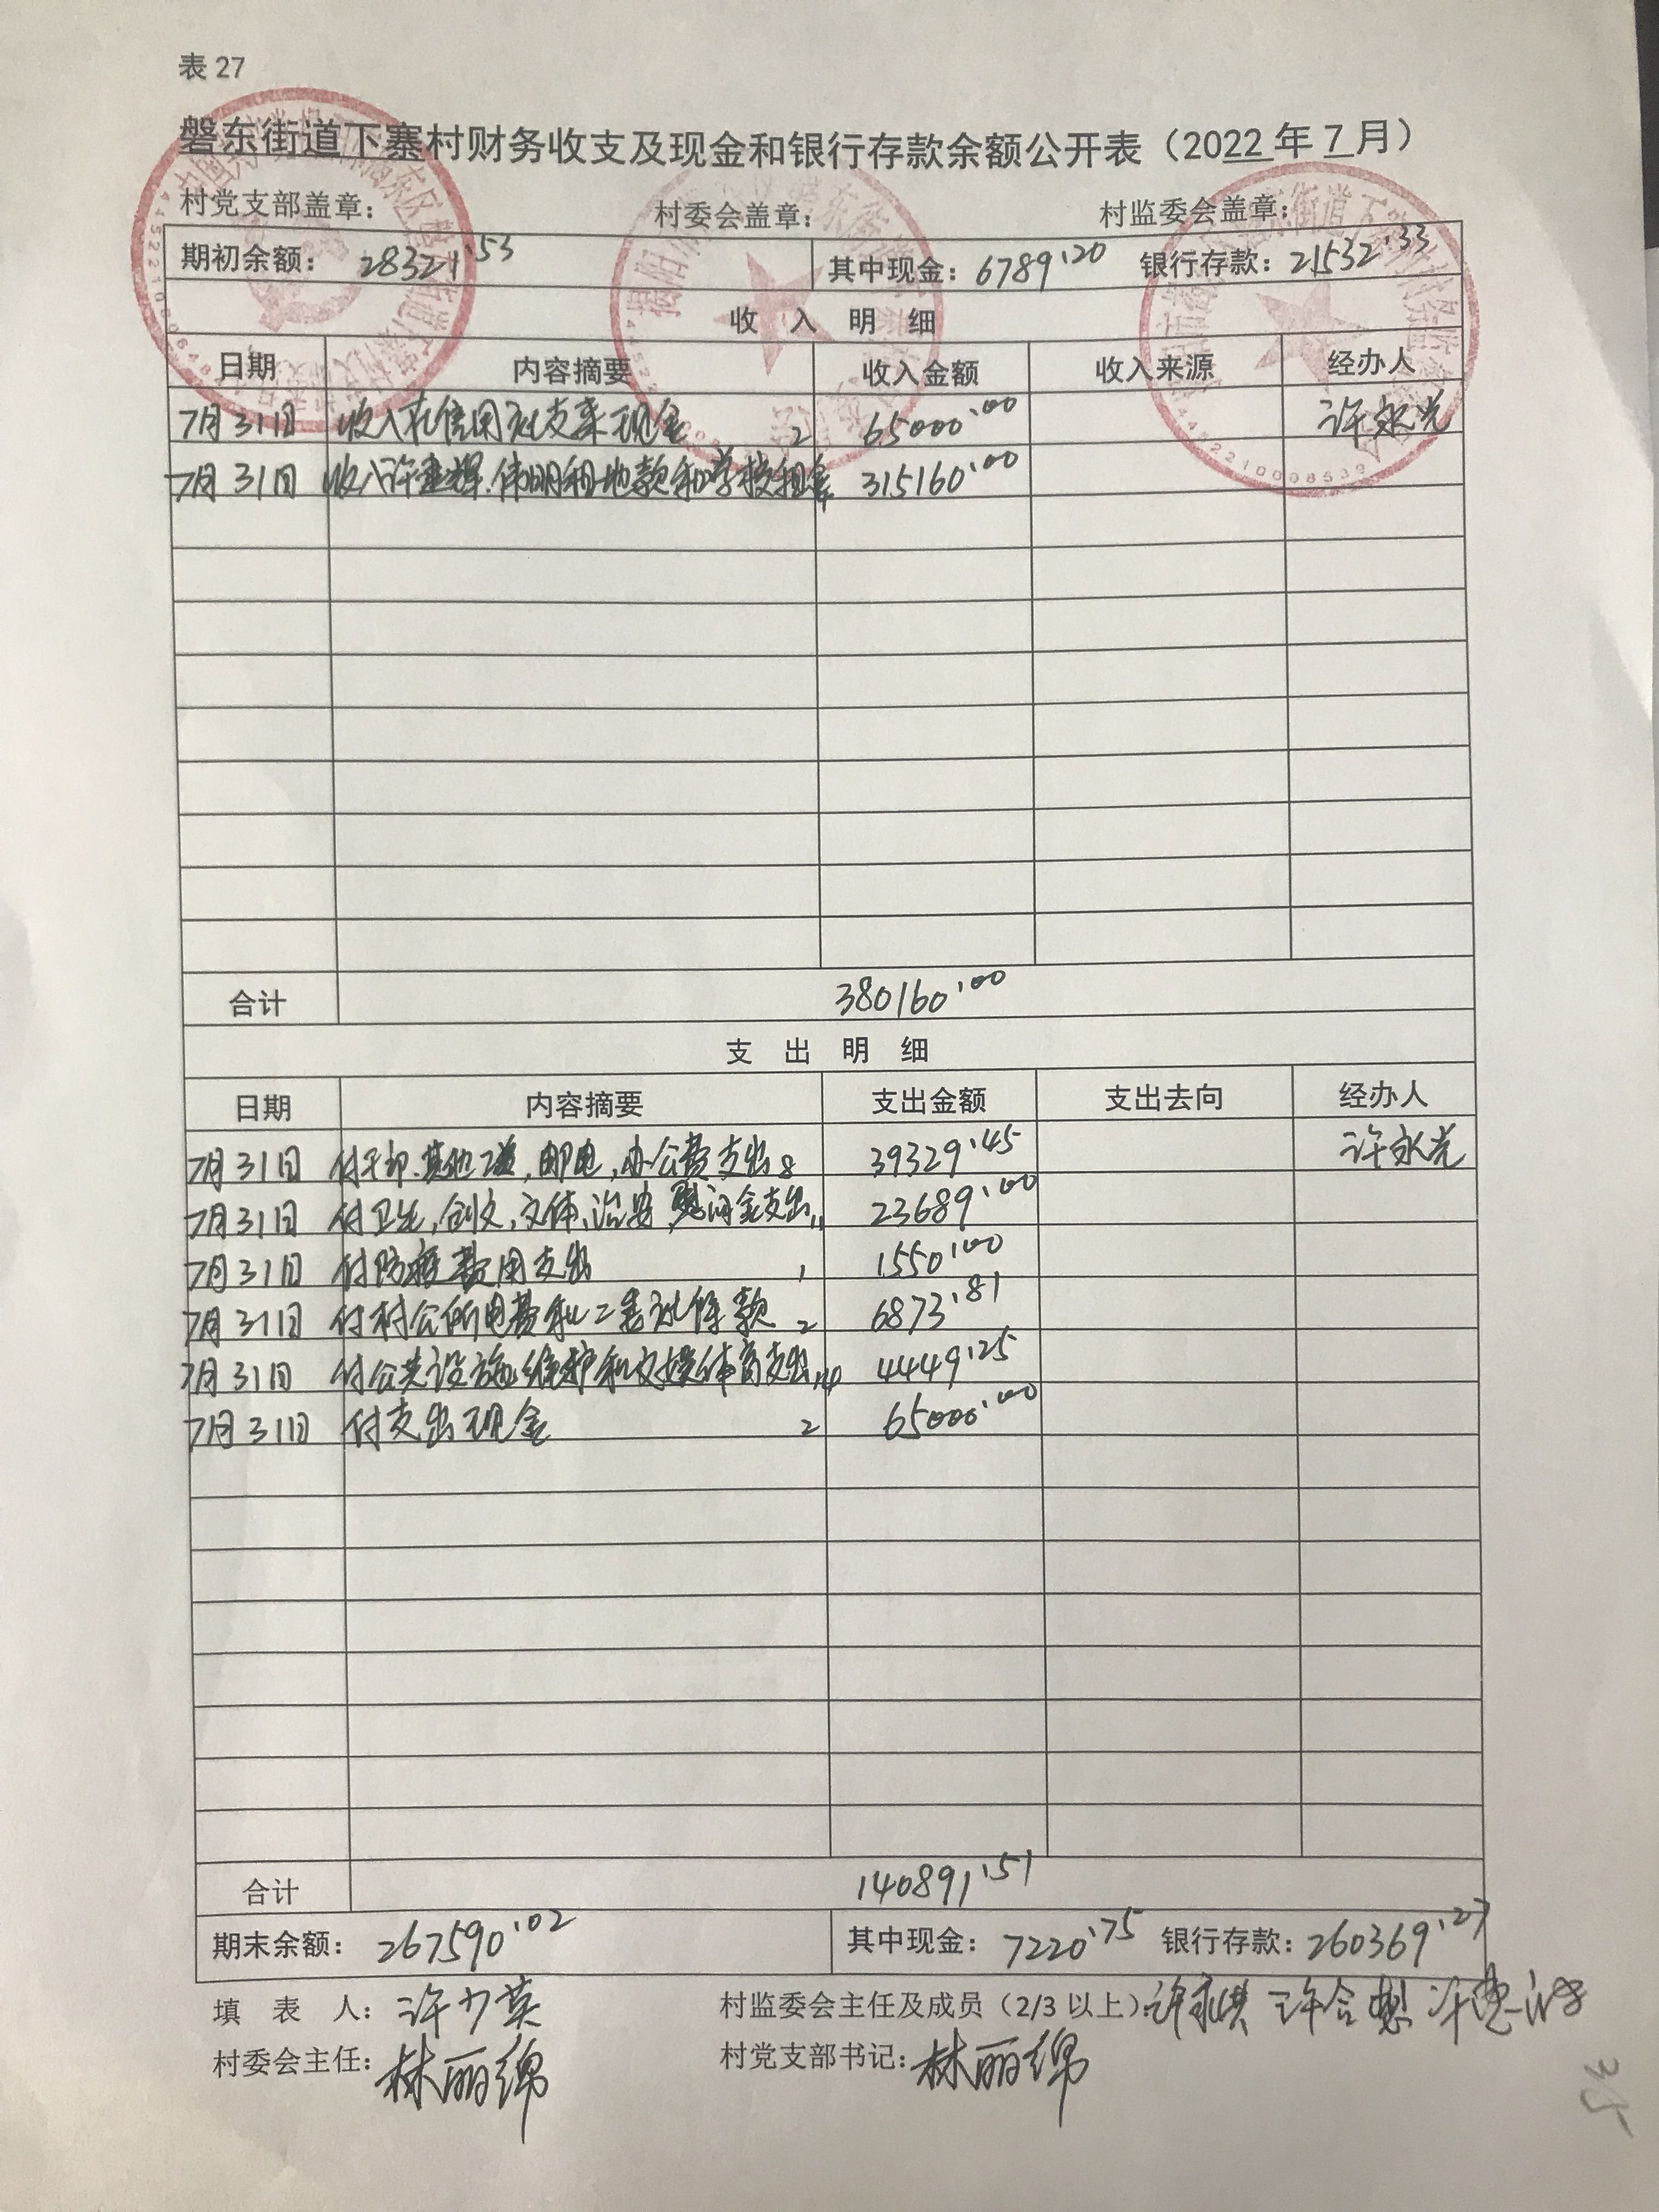 表 27
磐东街道下寨村财务收支及现金和银行存款余额公开表（2022 年 7 月）
村党支部盖章： 村委会盖章： 村监委会盖章：
期初余额： 28321.53 其中现金：6789.20 银行存款：21532.33
收 入 明 细
日期 内容摘要 收入金额 收入来源 经办人
7月31日 收入在信用社支来现金 2 65000.00 许永光
7月31日 收入许 辉、伟明租地款和学校租金 315160.00
合计 380160.00
支 出 明 细
日期 内容摘要 支出金额 支出去向 经办人
7月31日 付干部、其他工资,邮电,办公费支出 8 39329.45 许永光
7月31日 付卫生,创文,文体、治安,慰问金支出 11 23689.00
7月31日 付防疫费用支出 1 1550.00
7月31日 付村公所电费和 款 2 6873.81
7月31日 付公共设施维护和文娱体育支出 14 4449.25
7月31日 付支出现金 2 65000.00
合计 140891.51
期末余额： 267590.02 其中现金： 7220.75 银行存款：260369.27
填 表 人：许少英 村监委会主任及成员（2/3 以上）：
村委会主任：林丽绵 村党支部书记：林丽绵
35